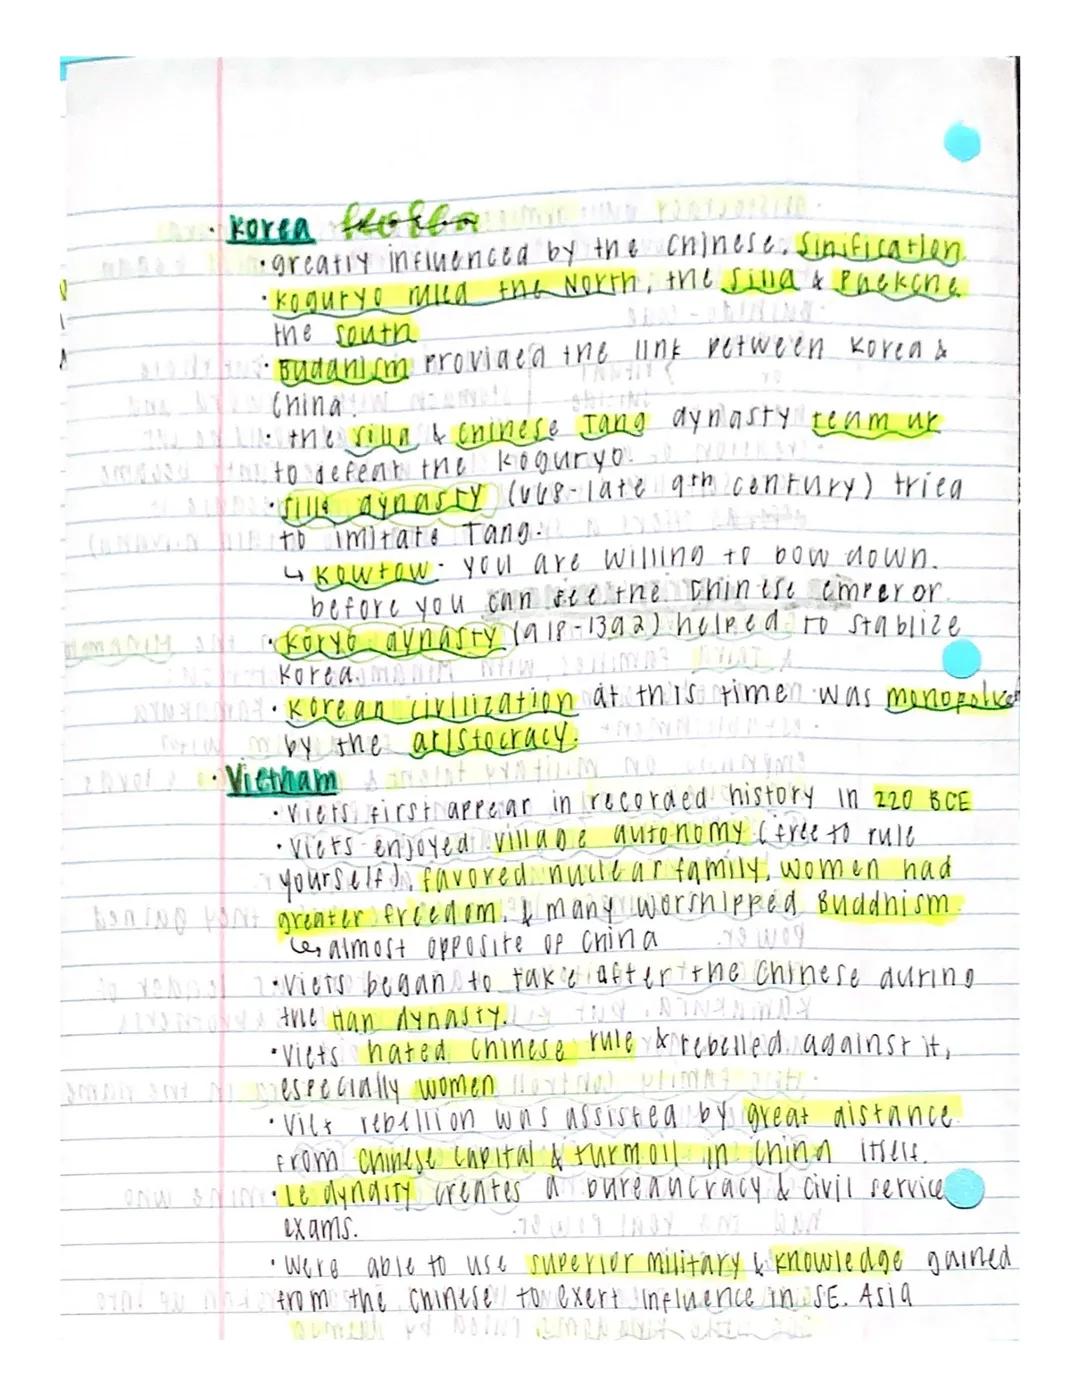 · Korea
· greatly influenced by the Chinese. Sinification.
· Koguryo ruled the North, the Silla & Paekche
the south
· Buddhism provided the link between Korea &
China.
· the Silla & Chinese Tang dynasty team up
to defeat the Koguryo.
· Silla dynasty (668-late 9th century) tried
to imitate Tang.
↳ Kowtow - you are willing to bow down.
before you can see the Chinese emperor.
· Koryo dynasty (918-1392) helped to stablize
Korea.
· Korean civilization at this time was monopolized
by the aristocracy.
· Vietnam
· Viets first appear in recorded history in 220 BCE
· Viets enjoyed village autonomy (free to rule
yourself), favored nuclear family, women had
greater freedom, & many worshipped Buddhism.
↳ almost opposite of China
· Viets began to take after the Chinese during
the Han dynasty.
· Viets hated Chinese rule & rebelled against it,
especially women
· Viet rebellion was assisted by great distance
from Chinese capital & turmoil in China itself.
· Le dynasty creates a bureaucracy & civil service
exams.
· Were able to use superior military & knowledge gained
from the Chinese to exert influence in SE. Asia